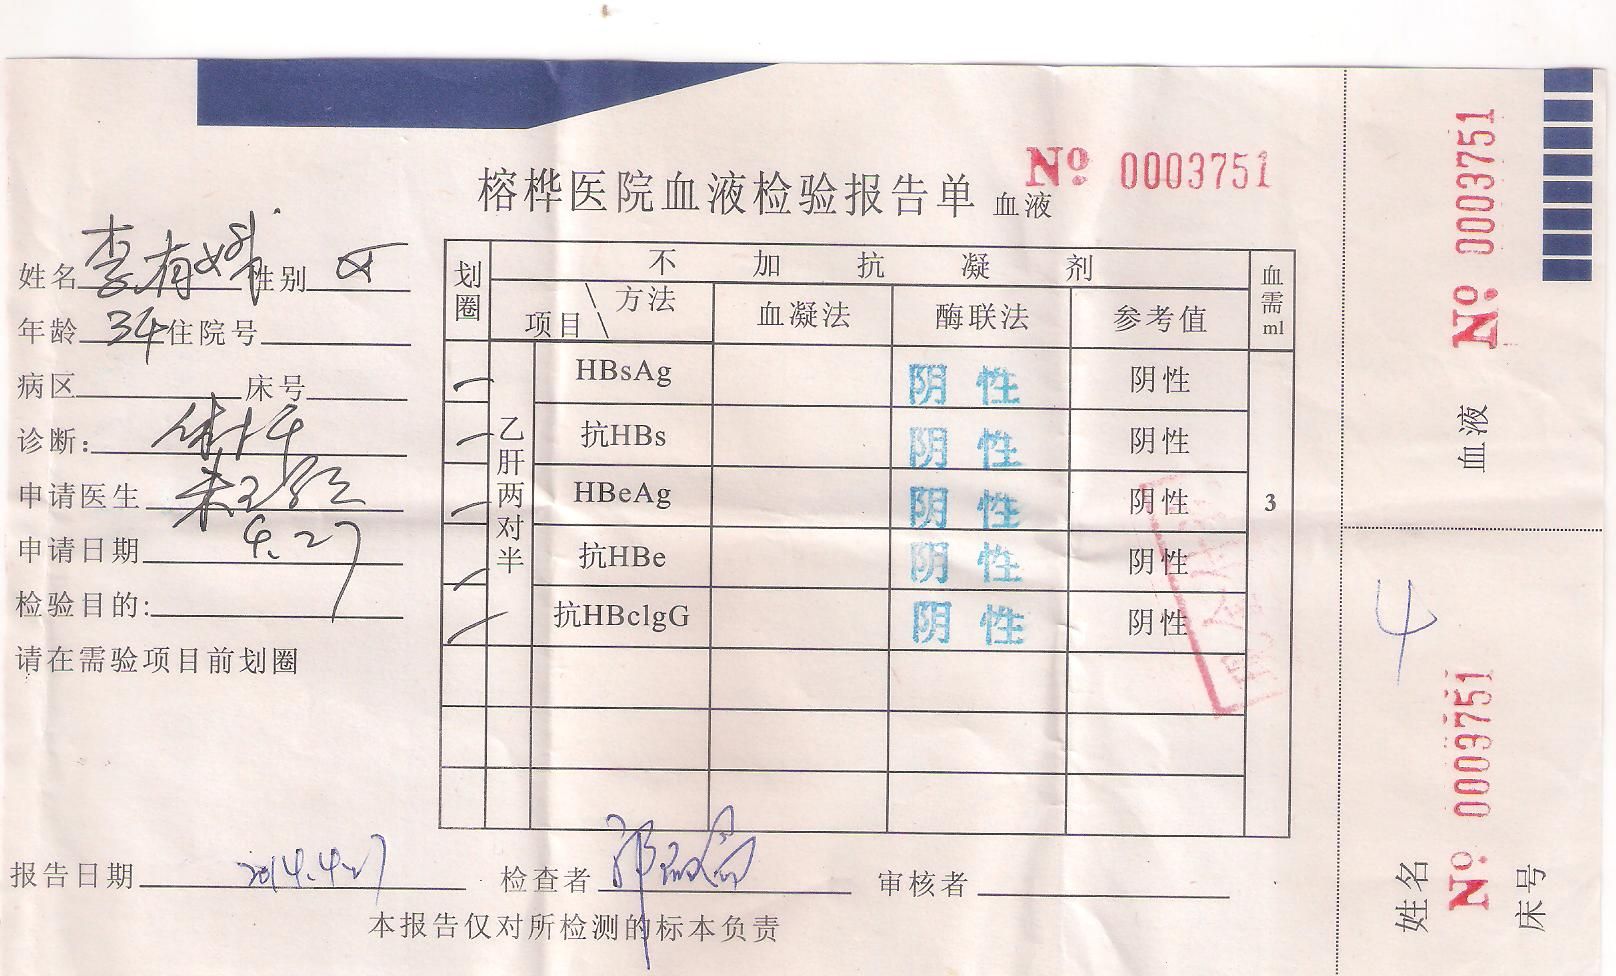 榕桦医院血液检验报告单 血液
№ 0003751
姓名 李有嫦 性别 女
年龄 34 住院号
病区 床号
诊断: 体检
申请医生
申请日期 4.27
检验目的:
请在需验项目前划圈
划圈 不加抗凝剂 血需ml
方法 项目 血凝法 酶联法 参考值
乙肝两对半
HBsAg 阴性 阴性
抗HBs 阴性 阴性
HBeAg 阴性 阴性
抗HBe 阴性 阴性
抗HBclgG 阴性 阴性
3
报告日期 2014.4.27 检查者 审核者
本报告仅对所检测的标本负责
血液 № 0003751
4
姓名 № 0003751 床号